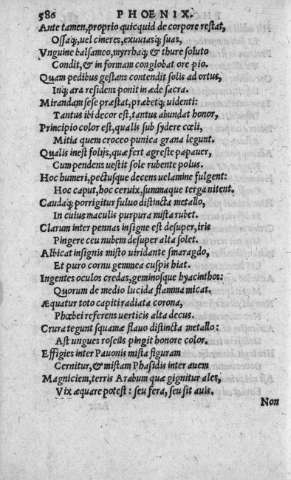 586 PHOENIX.
Ante tamen, proprio quicquid de corpore restat,
Ossaq́;, uel cineres, exuuiasq́; suas,
Vnguine balsameo, myrrhaq́;, & thure soluto
Condit, & in formam conglobat ore pio.
Quam pedibus gestans contendit solis ad ortus,
Inq́; ara residens ponit in æde sacra.
Mirandam sese præstat, præbetq́; uidenti:
Tantus ibi decor est, tantus abundat honor,
Principio color est, qualis sub sydere cœli,
Mitia quem croceo punica grana legunt.
Qualis inest folijs, quæ fert agreste papauer,
Cum pendens uestit sole rubente polus.
Hoc humeri, pectusque decens uelamine fulgent:
Hoc caput, hoc ceruix, summaque terga nitent.
Caudaq́; porrigitur fuluo distincta metallo,
In cuius maculis purpura mista rubet.
Clarum inter pennas insigne est desuper, iris
Pingere ceu nubem desuper alta solet.
Albicat insignis misto uiridante smaragdo,
Et puro cornu gemmea cuspis hiat.
Ingentes oculos credas, geminosque hyacinthos:
Quorum de medio lucida flamma micat.
Æquatur toto capiti radiata corona,
Phœbei referens uerticis alta decus.
Crura tegunt squamæ flauo distincta metallo:
Ast ungues roseus pingit honore color.
Effigies inter Pauonis mista figuram
Cernitur, & mistam Phasidis inter auem
Magniciem, terris Arabum quæ gignitur ales,
Vix æquare potest: seu fera, seu sit auis.
Non